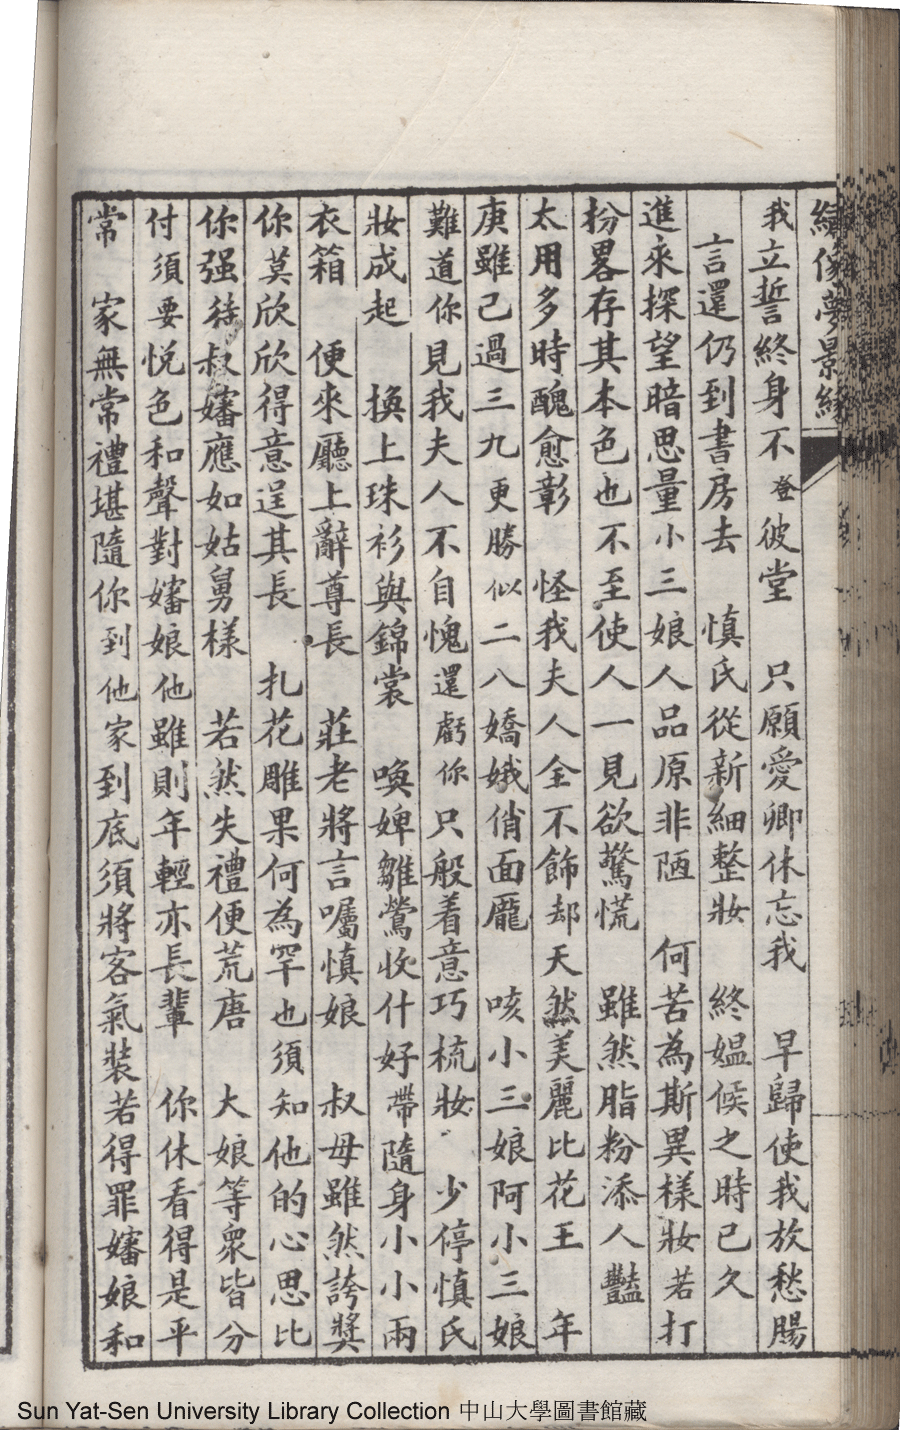 繡像夢景緣
我立誓終身不登彼堂　只願愛卿休忘我　早歸使我放愁腸
言還仍到書房去　慎氏從新細整妝　終媪候之時已久
進來探望暗思量小三娘人品原非陋　何苦為斯異樣妝若打
扮畧存其本色也不至使人一見欲驚慌　雖然脂粉添人豔
太用多時醜愈彰　怪我夫人全不飾却天然美麗比花王　年
庚雖己過三九更勝似二八嬌娥俏面龐　咳小三娘阿小三娘
難道你見我夫人不自愧還虧你只般着意巧梳妝　少停慎氏
妝成起　換上珠衫與錦裳　喚婢雛鶯收什好帶隨身小小兩
衣箱　便來廳上辭尊長　莊老將言囑慎娘　叔母雖然誇獎
你莫欣欣得意逞其長　扎花雕果何為罕也須知他的心思比
你强待叔嬸應如姑舅樣　若然失禮便荒唐　大娘等衆皆分
付須要悦色和聲對嬸娘他雖則年輕亦長輩　你休看得是平
常　家無常禮堪隨你到他家到底須將客氣裝若得罪嬸娘和
Sun Yat-Sen University Library Collection 中山大學圖書館藏